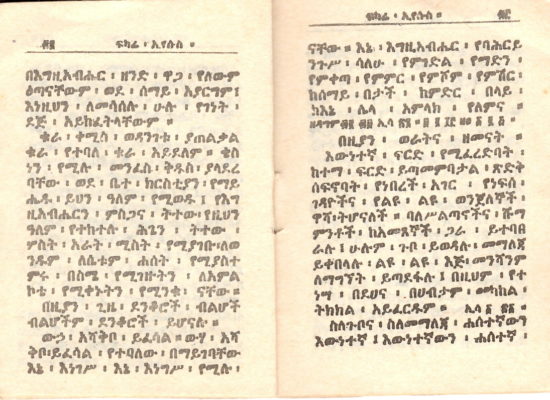 ፍካሬ ፡ ኢየሱስ ።
በእግዚአብሔር ፡ ዘንድ ፡ ዋጋ ፡ የለውም
ዕጣናቸውም ፡ ወደ ፡ ሰማይ ፡ አያርግም፤
እነዚህን ፡ ለመሳሰሉ ፡ ሁሉ ፡ የገነት ፡
ደጅ ፡ አይከፈትላቸውም ።
ቁራ ፡ ቀሚስ ፡ ወዳንገቱ ፡ ያጠልቃል
ቁራ ፡ የተባለ ፡ ቁራ ፡ አይደለም ። ቄስ
ነን ፡ የሚሉ ፡ መንፈስ ፡ ቅዱስ ፡ ያላደረ
ባቸው ፡ ወደ ፡ ቤተ ፡ ክርስቲያን ፡ የማይ
ሔዱ ፡ ይህን ፡ ዓለም ፡ የሚወዱ ፤ የእግ
ዚአብሔርን ፡ ምስጋና ፡ ትተው፡የዚህን
ዓለም ፡ የተከተሉ ፡ ሕጌን ፡ ትተው ፡
ሦስት ፡ አራት ፡ ሚስት ፡ የሚያገቡ፡ለወ
ንዱም ፡ ለሴቱም ፡ ሐሰት ፡ የሚያስተ
ምሩ ፡ በስሜ ፡ የሚነግዱትን ፡ ለእምል
ኮቴ ፡ የሚቀኑትን ፡ የሚነቁ ፡ ናቸው ።
በዚያን ፡ ጊዜ ፡ ደንቆሮች ፡ ብልሆች
ብልሆችም ፡ ደንቆሮች ፡ ይሆናሉ ።
ውኃ ፡ አሻቅቦ ፡ ይፈሳል ። ውሃ ፡ አሻ
ቅቦ፡ይፈሳል ፡ የተባለው ፡ በማይገባቸው
እኔ ፡ እነግሥ ፡ እኔ ፡ እነግሥ ፡ የሚሉ ፡
ፍካሬ ፡ ኢየሱስ ።
ናቸው ። እኔ ፡ እግዚአብሔር ፡ የባሕርይ
ንጉሥ ፡ ሳለሁ ፡ የምገድል ፡ የማድን ፡
የምቀጣ ፡ የምምር ፡ የምሾም ፡ የምሽር ፡
ከሰማይ ፡ በታች ፡ ከምድር ፡ በላይ ፡
ከእኔ ፡ ሌላ ፡ አምላክ ፡ የለምና ።
በዚያን ፡ ወራትና ፡ ዘመናት ።
እውነተኛ ፡ ፍርድ ፡ የሚፈረድባት ፡
ከተማ ፡ ፍርድ ፡ ይጣመምባታል ፡ ጽድቅ
ሰፍኖባት ፡ የነበረች ፡ አገር ፡ የነፍሰ
ገዳዮችና ፡ የልዩ ፡ ልዩ ፡ ወንጀለኞች
ዋሻ፡ትሆናለች ። ባለሥልጣኖችና ፡ ሹማ
ምንቶች ፡ ከአመፀኞች ፡ ጋራ ፡ ይተባበ
ራሉ ፤ ሁሉም ፡ ጉቦ ፡ ይወዳሉ፡መማለጃ
ይቀበላሉ ፡ ልዩ ፡ ልዩ ፡ እጅ፡መንሻንም
ለማግኘት ፡ ይጣደፋሉ ፤ በዚህም ፡ የተ
ነሣ ፡ በደሀና ፡ በሀብታም ፡ መካከል ፡
ትክክል ፡ አይፈርዱም ።
ስለጉቦና ፡ ስለመማለጃ ፡ ሐሰተኛውን
እውነተኛ ፤ እውነተኛውን ፡ ሐሰተኛ ፡